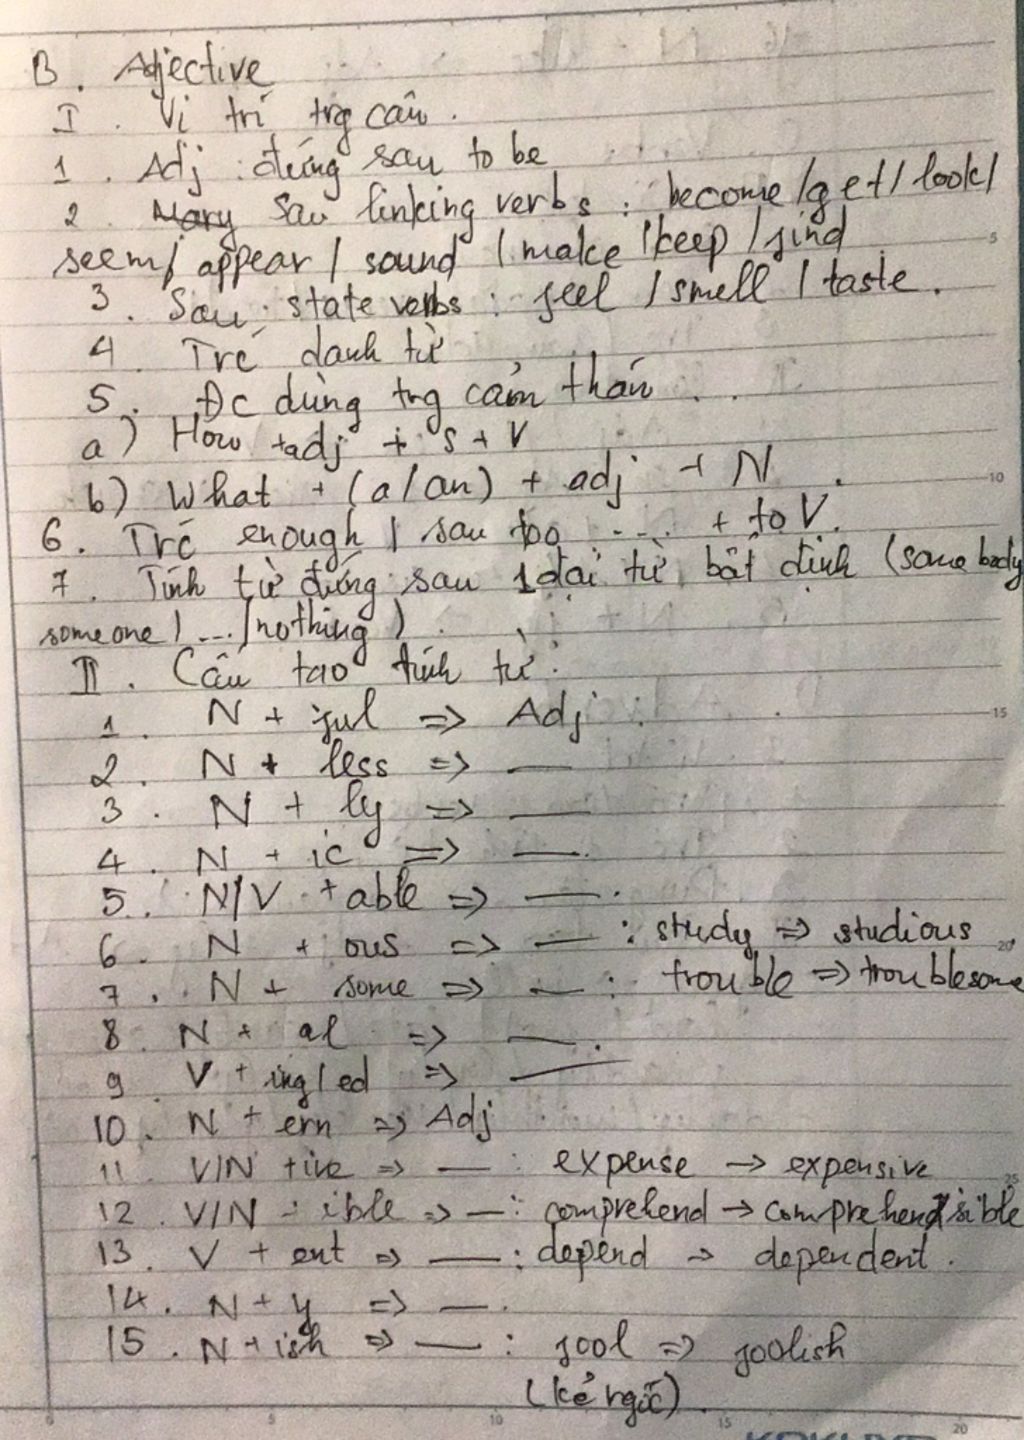 B. Adjective
I. Vị trí trg câu.
1. Adj: đứng sau to be
2. Sau linking verbs: become/get/look/
seem/ appear/ sound / make /keep /find
3. Sau: state verbs: feel / smell / taste.
4. Trc danh từ
5. Đc dùng trg cảm thán.
a) How + adj + S + V
b) What + (a/an) + adj + N.
6. Trc enough / sau too .... + to V.
7. Tính từ đứng sau 1 đại từ bất định (somebody
someone/ .... /nothing)
II. Cấu tạo tính từ:
1. N + ful => Adj
2. N + less => —
3. N + ly => —
4. N + ic => —
5. N/V + able => —
6. N + ous => — : study => studious
7. N + some => — : trouble => troublesome
8. N + al => —
9 V + ing/ed => —
10. N + ern => Adj
11 V/N + ive => — : expense → expensive
12. V/N - ible => — : comprehend → comprehensible
13. V + ent => — : depend → dependent.
14. N + y => —.
15. N + ish => — : fool => foolish
(kẻ ngốc)
5
10
15
20
25
0 5 10 15 20